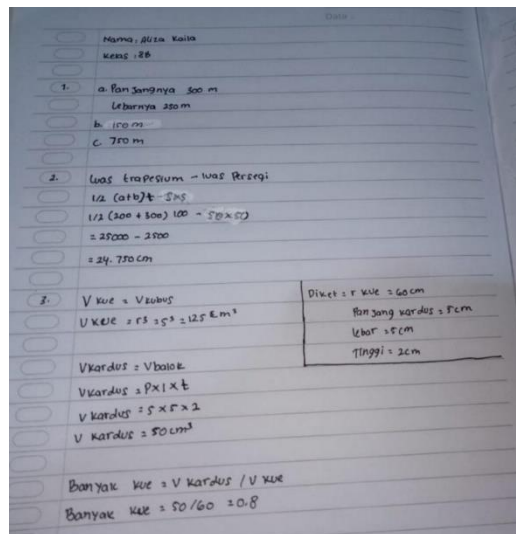 Date :
Nama : Aliza Kaila
Kelas : 8B
1. a. Panjangnya 300 m
Lebarnya 250 m
b. 150 m
c 750 m
2. Luas trapesium - luas Persegi
1/2 (a+b)t - SxS
1/2 (200 + 300) 100 - 50x50
= 25000 - 2500
= 24.750 cm
3. V kue = V kubus
V kue = r3 = 5³ = 125 cm³
Diket : r kue = 60cm
Panjang kardus = 5cm
lebar = 5cm
Tinggi = 2cm
Vkardus = Vbalok
Vkardus = Pxlxt
V kardus = 5x5x2
V kardus = 50 cm³
Banyak kue = V kardus / V kue
Banyak kue = 50/60 = 0.8